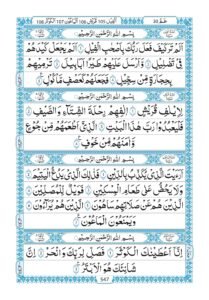 بِسْمِ اللّٰهِ الرَّحْمٰنِ الرَّحِيْمِ
اَلَمْ تَرَ كَيْفَ فَعَلَ رَبُّكَ بِاَصْحٰبِ الْفِيْلِ اَلَمْ يَجْعَلْ كَيْدَهُمْ
فِيْ تَضْلِيْلٍ وَّاَرْسَلَ عَلَيْهِمْ طَيْرًا اَبَابِيْلَ تَرْمِيْهِمْ
بِحِجَارَةٍ مِّنْ سِجِّيْلٍ فَجَعَلَهُمْ كَعَصْفٍ مَّاْكُوْلٍ
بِسْمِ اللّٰهِ الرَّحْمٰنِ الرَّحِيْمِ
لِاِيْلٰفِ قُرَيْشٍ اٖلٰفِهِمْ رِحْلَةَ الشِّتَآءِ وَالصَّيْفِ
فَلْيَعْبُدُوْا رَبَّ هٰذَا الْبَيْتِ الَّذِيْٓ اَطْعَمَهُمْ مِّنْ جُوْعٍ
وَّاٰمَنَهُمْ مِّنْ خَوْفٍ
بِسْمِ اللّٰهِ الرَّحْمٰنِ الرَّحِيْمِ
اَرَءَيْتَ الَّذِيْ يُكَذِّبُ بِالدِّيْنِ فَذٰلِكَ الَّذِيْ يَدُعُّ الْيَتِيْمَ
وَلَا يَحُضُّ عَلٰى طَعَامِ الْمِسْكِيْنِ فَوَيْلٌ لِّلْمُصَلِّيْنَ
الَّذِيْنَ هُمْ عَنْ صَلَاتِهِمْ سَاهُوْنَ الَّذِيْنَ هُمْ يُرَآءُوْنَ
وَيَمْنَعُوْنَ الْمَاعُوْنَ
بِسْمِ اللّٰهِ الرَّحْمٰنِ الرَّحِيْمِ
اِنَّآ اَعْطَيْنٰكَ الْكَوْثَرَ فَصَلِّ لِرَبِّكَ وَانْحَرْ اِنَّ
شَانِئَكَ هُوَ الْاَبْتَرُ
547